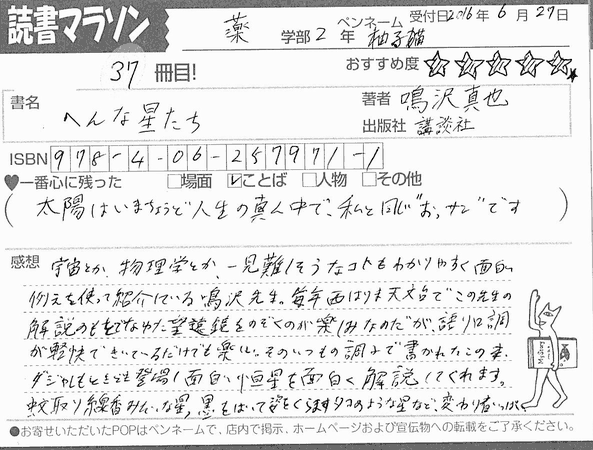 読書マラソン 薬 学部 2 年 ペンネーム 柚子猫 受付日 2016年 6月 27日
37 冊目! おすすめ度 ☆☆☆☆☆
書名 へんな星たち
著者 鳴沢真也
出版社 講談社
ISBN 978-4-06-257971-1
♥一番心に残った □場面 ☑ことば □人物 □その他
(太陽はいまちょうど人生の真ん中で、私と同じ"おっサン"です)
感想 宇宙とか、物理学とか、一見難しそうなコトもわかりやすく面白い
例えを使って紹介している鳴沢先生。毎年西はりま天文台でこの先生の
解説のもとでなゆた望遠鏡をのぞくのが楽しみなのだが、語り口調
が軽快できいているだけでも楽しい。そのいつもの調子で書かれたこの本。
ダジャレもときどき登場し面白い恒星を面白く解説してくれます。
蚊取り線香みたいな星、黒をはいて姿をくらますタコのような星など、変わり者いっぱい
Mystery
●お寄せいただいたPOPはペンネームで、店内で掲示、ホームページおよび宣伝物への転載をご了承ください。